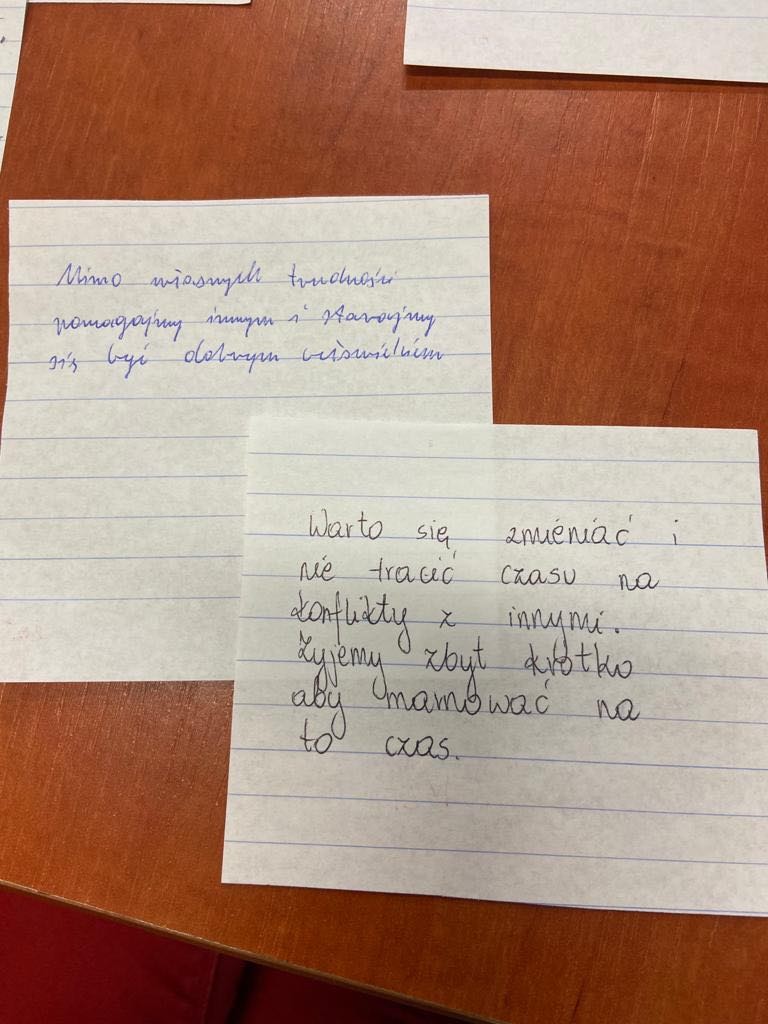 Mimo własnych trudności
pomagajmy innym i starajmy
się być dobrym człowiekiem
Warto się zmieniać i
nie tracić czasu na
konflikty z innymi.
Żyjemy zbyt krótko
aby marnować na
to czas.